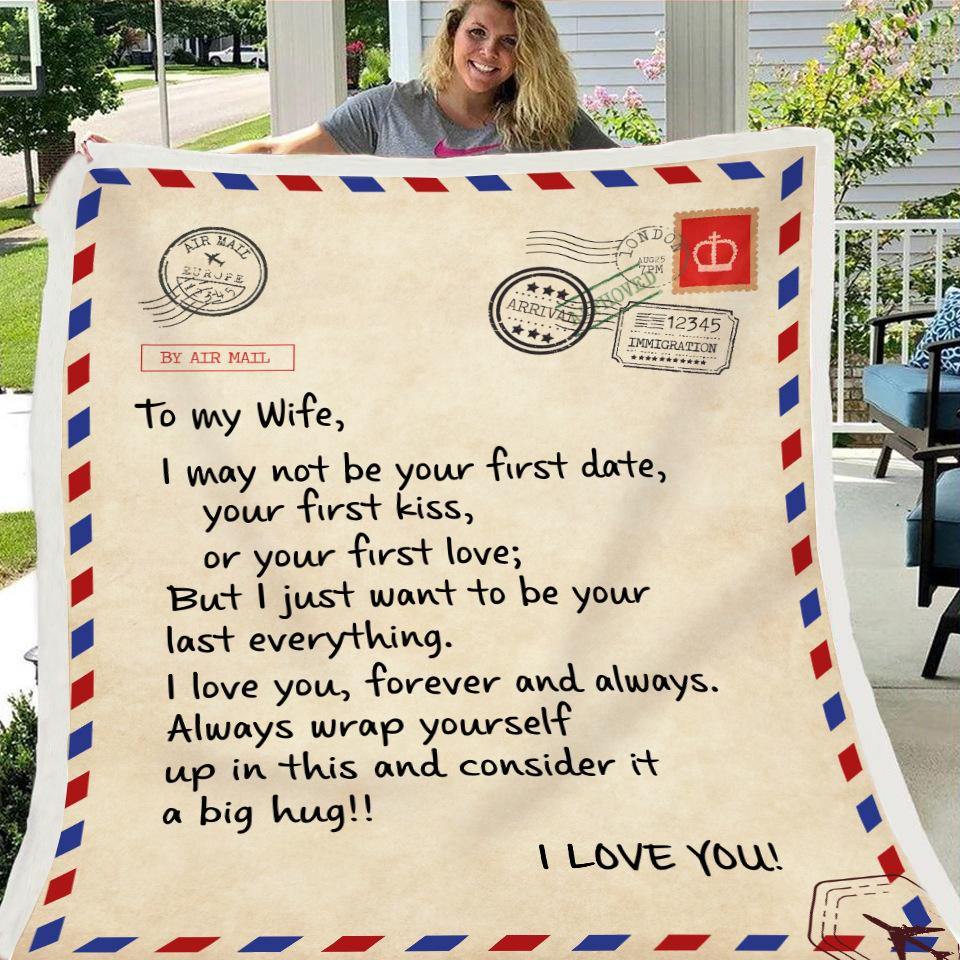 AIR MAIL
EUROPE
12345
LONDON
AUG25
7PM
ARRIVAL
12345
IMMIGRATION
BY AIR MAIL
To my Wife,
I may not be your first date,
your first kiss,
or your first love;
But I just want to be your
last everything.
I love you, forever and always.
Always wrap yourself
up in this and consider it
a big hug!!
I LOVE YOU!